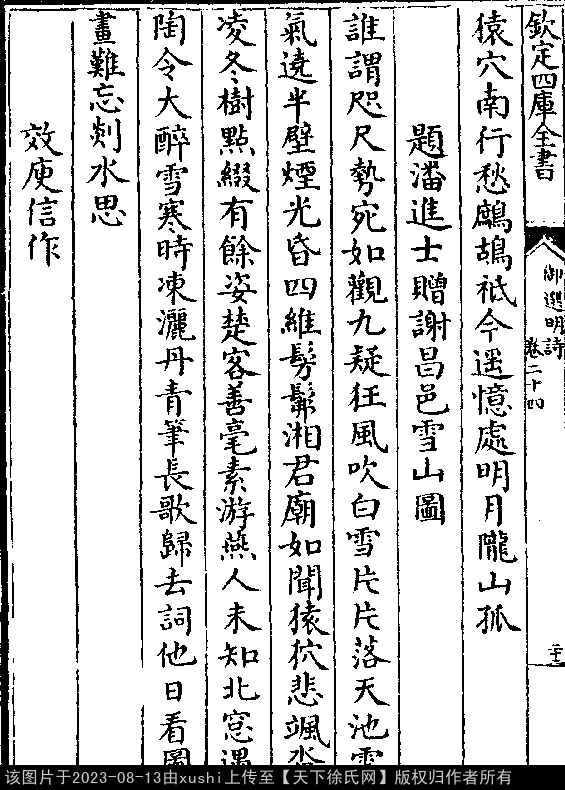 欽定四庫全書
御選明詩 卷二十四
猿穴南行愁鷓鴣祗今遥憶處明月隴山孤
題潘進士贈謝昌邑雪山圖
誰謂咫尺勢宛如觀九疑狂風吹白雪片片落天池雪
氣遶半壁煙光昏四維髣髴湘君廟如聞猿狖悲颯沓
凌冬樹點綴有餘姿楚客善毫素游燕人未知北窓遇
陶令大醉雪寒時凍灑丹青筆長歌歸去詞他日看圖
畫難忘剡水思
效庾信作
该图片于2023-08-13由xushi上传至【天下徐氏网】版权归作者所有